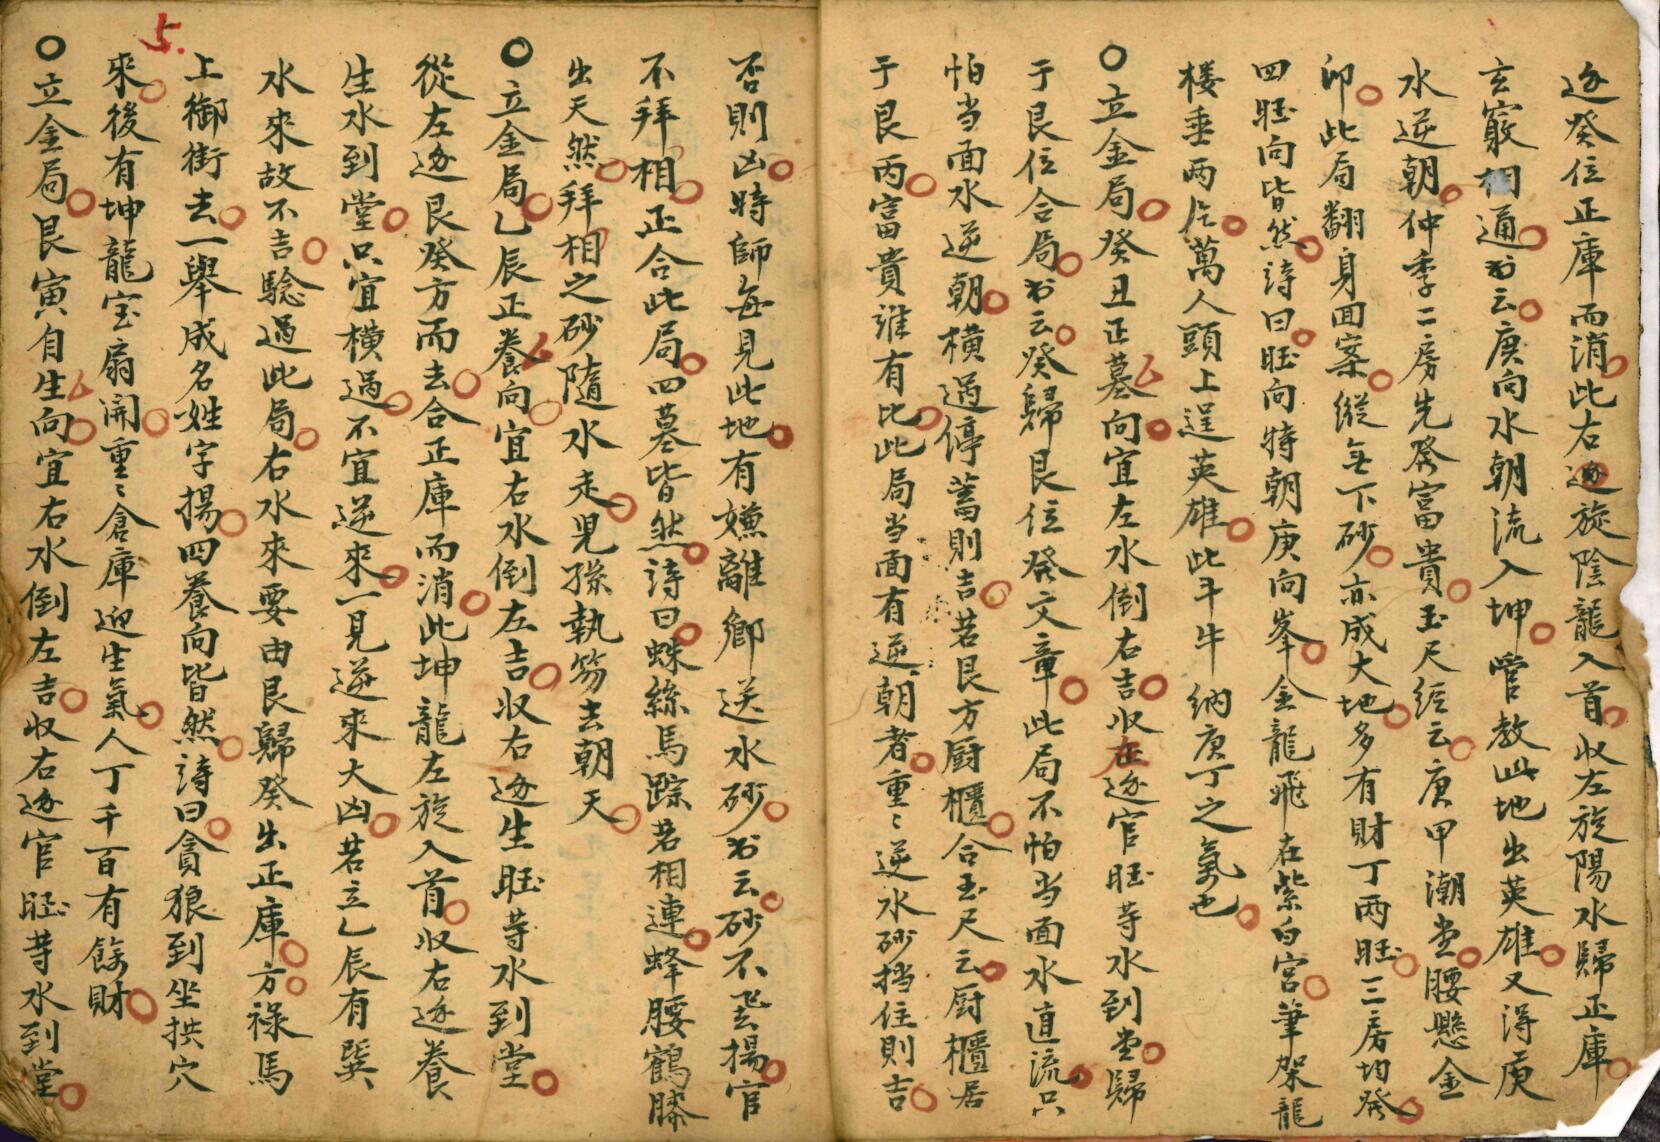 逐癸位正庫而消此右逆旋陰龍入首收左旋陽水歸正庫
玄竅相通书云庚向水朝流入坤管教此地出英雄又得庚
水逆朝仲季二房先發富貴玉尺經云庚甲潮堂腰懸金
印此局翻身回案縱無下砂亦成大地多有財丁両旺三房均發
四旺向皆然詩曰旺向特朝庚向峯金龍飛在紫白宮筆架龍
楼垂両片萬人頭上逞英雄此斗牛納庚丁之氣也
○立金局癸丑正墓向宜左水倒右吉收左逆官旺䓁水到堂歸
于艮位合局书云癸歸艮位發文章此局不怕当面水直流只
怕当面水逆朝橫過停蓄則吉若艮方厨櫃合玉尺云厨櫃居
于艮丙富貴誰有比此局当面有逆朝者重〻逆水砂挡住則吉
否則凶時師每見此地有嫌離鄉送水砂书云砂不飞去揚官
不拜相正合此局四墓皆然詩曰蛛絲馬踪若相連蜂腰鶴膝
出天然拜相之砂隨水走児孫執笏去朝天
○立金局乙辰正養向宜右水倒左吉收右逆生旺䓁水到堂
從左逆艮癸方而去合正庫而消此坤龍左旋入首收右逆養
生水到堂只宜橫過不宜逆來一見逆來大凶若立乙辰有巽
水來故不吉騐過此局右水來要由艮歸癸出正庫方祿馬
上御街去一舉成名姓字揚四養向皆然詩曰貪狼到坐拱穴
來後有坤龍宝扇開重〻倉庫迎生氣人丁千百有餘財
○立金局艮寅自生向宜右水倒左吉收右逆官旺䓁水到堂
5.